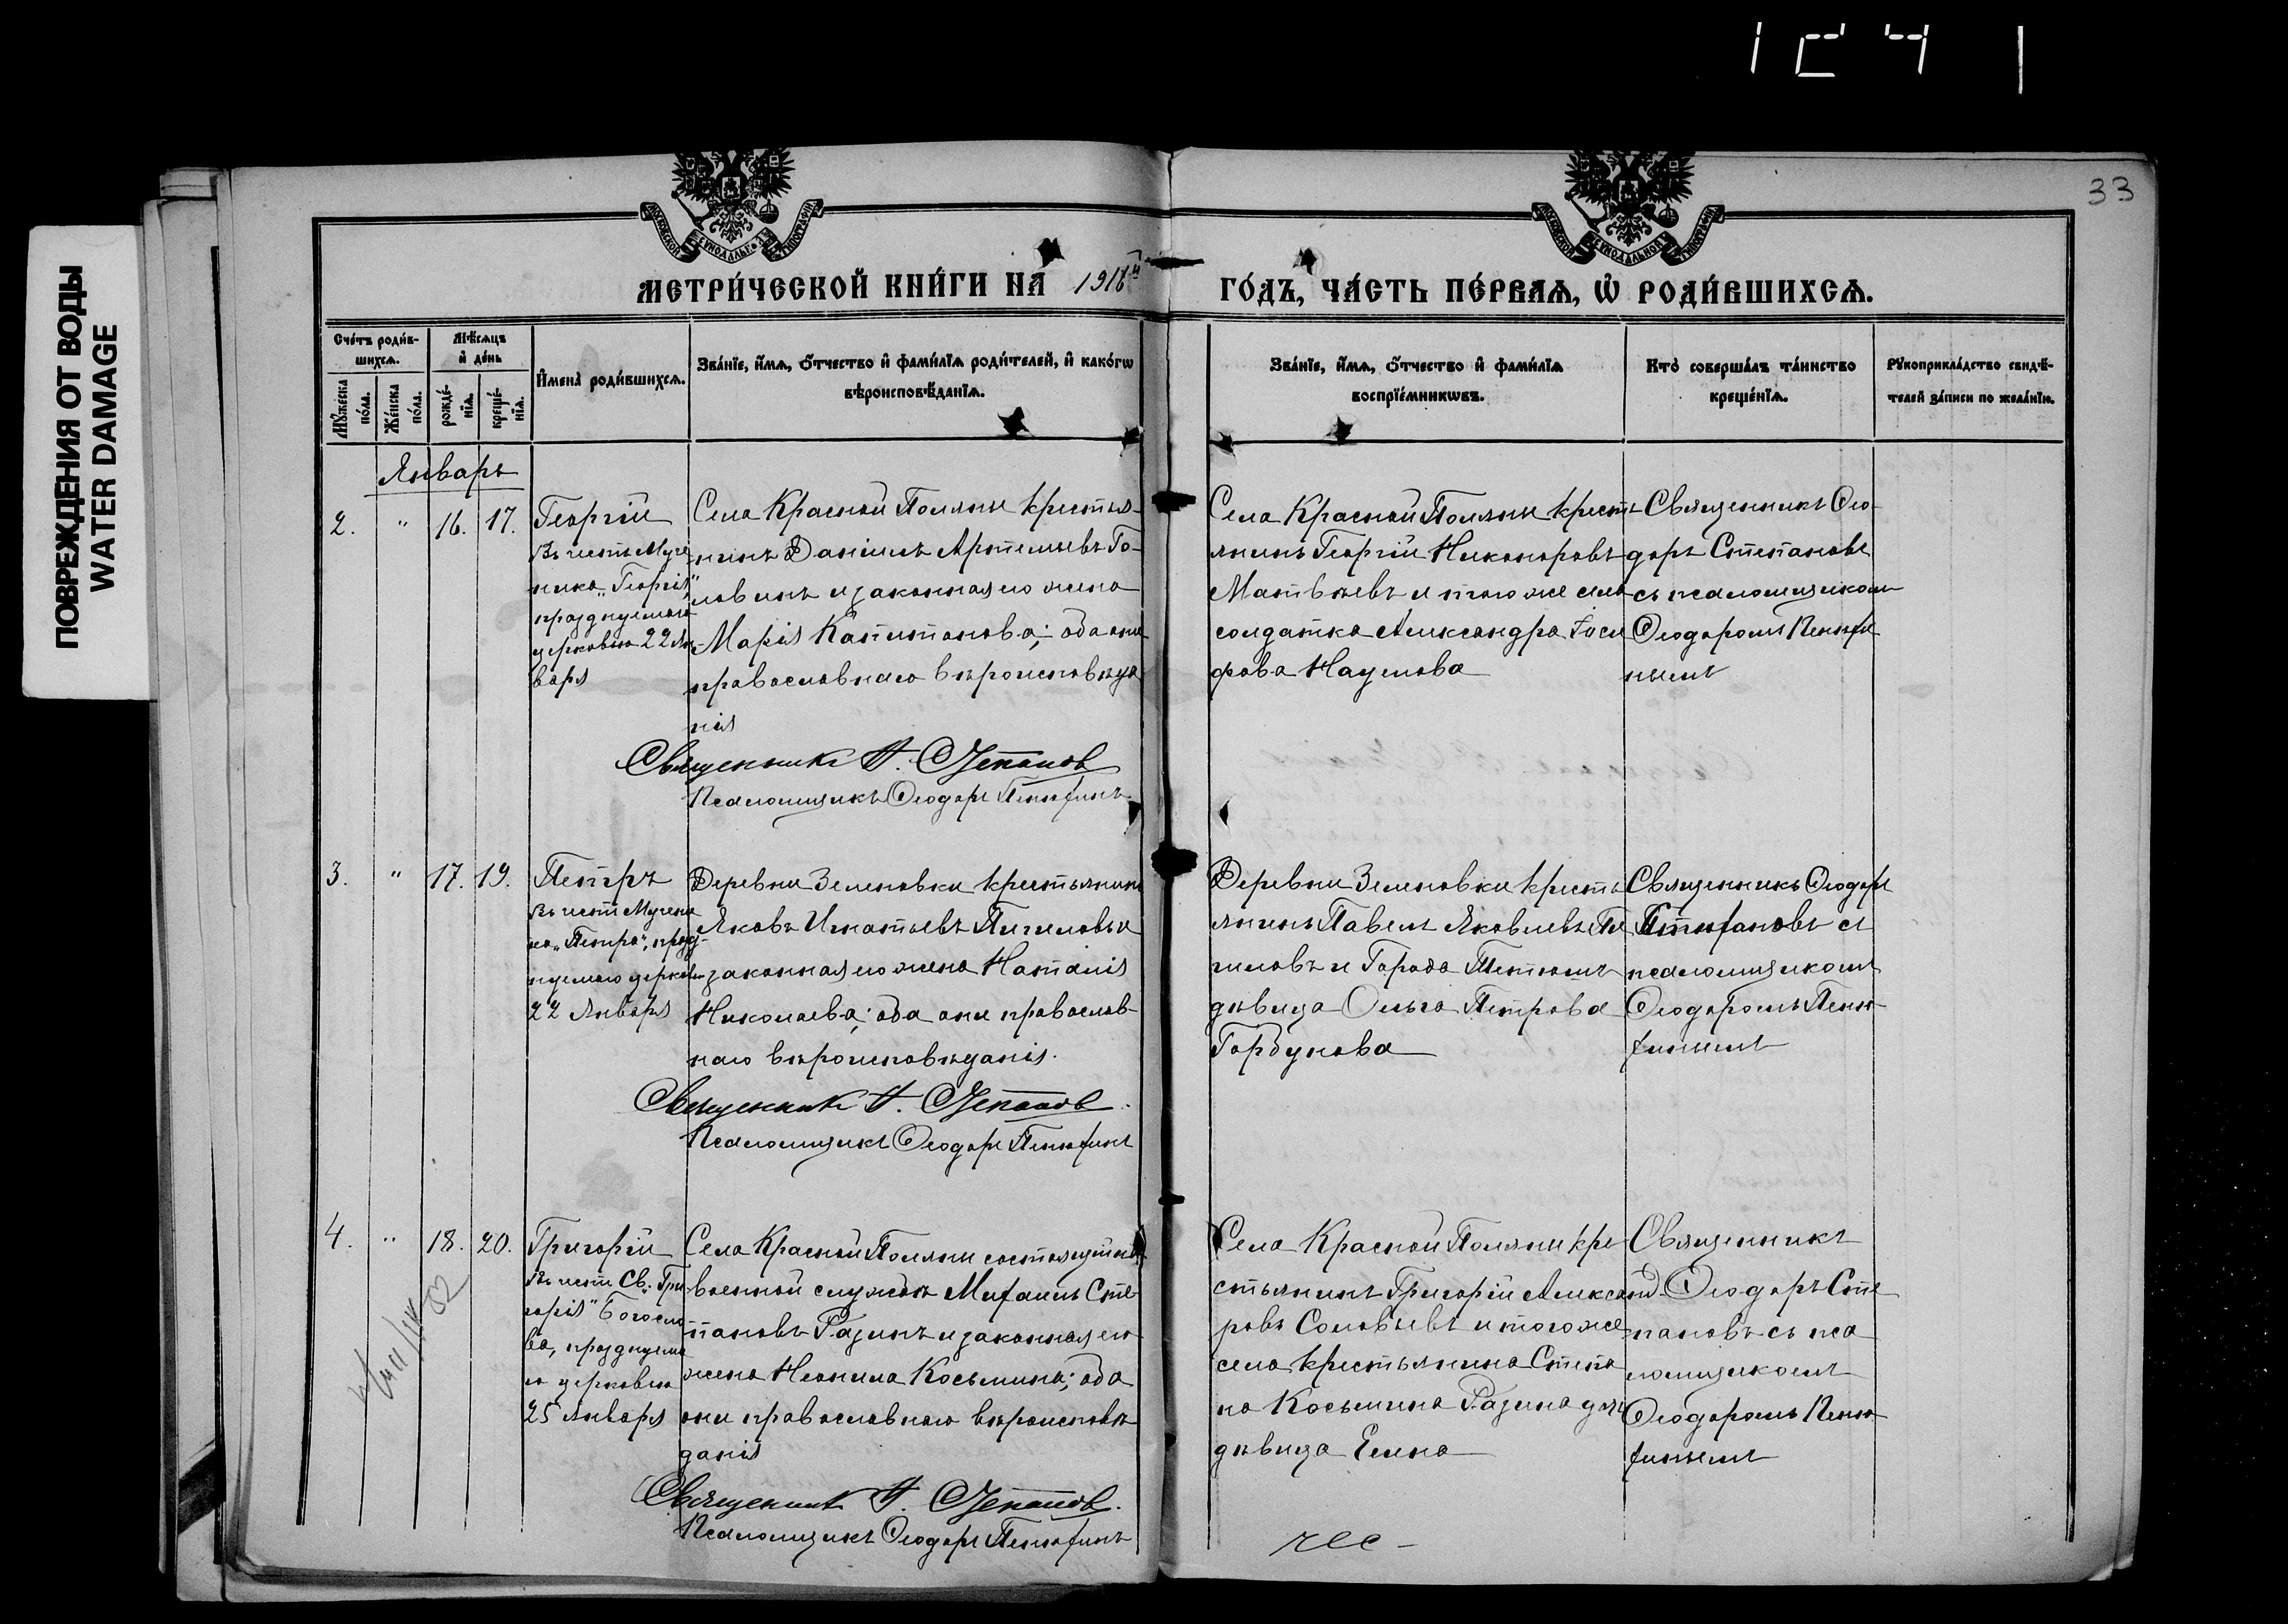 33
ПОВРЕЖДЕНИЯ ОТ ВОДЫ
WATER DAMAGE
МОСКОВСКОЙ СѴНОДАЛЬНОЙ ТИПОГРАФІИ
МОСКОВСКОЙ СѴНОДАЛЬНОЙ ТИПОГРАФІИ
МЕТРИ́ЧЕСКОЙ КНИ́ГИ НА
ГО́ДЪ, ЧА́СТЬ ПЕ́РВАѦ, Ѡ РОДИ́ВШИХСѦ.
Сче́тъ роди́в-
шихсѧ.
Мѣ́сѧцъ
и҆ де́нь
Мꙋ́жеска
по́ла.
Же́нска
по́ла.
рожде́-
нїѧ.
креще́-
нїѧ.
И҆мена̀ роди́вшихсѧ.
Зва́нїе, и҆́мѧ, ѻ҆́тчество и҆ фами́лїѧ роди́телей, и҆ како́гѡ
вѣроисповѣ́данїѧ.
Зва́нїе, и҆́мѧ, ѻ҆́тчество и҆ фами́лїѧ
воспрїе́мникѡвъ.
Кто̀ соверша́лъ та́инство
креще́нїѧ.
Рꙋкоприкла́дство свидѣ́-
телей за́писи по жела́нїю.
Январь
2.
"
16.
17.
Георгій
Въ честь Муче
ника „Георгія"
празднуемаго
церковью 22 Ян-
варя
Села Красной Поляны крестья-
нинъ Даніилъ Артемьевъ Го-
ловинъ и законная его жена
Марія Капитонова; оба они
православнаго вѣроисповѣда
нія
Священникъ Ѳ. Степанов
Псаломщикъ Ѳеодоръ Пенюфинъ
Села Красной Поляны кресть
янинъ Георгій Никоноровъ
Матвѣевъ и того же села
солдатка Александра Іоси
фова Наумова
Священникъ Ѳео-
доръ Степановъ
съ псаломщикомъ
Ѳеодоромъ Пенюфи
нымъ
3.
"
17.
19.
Петръ
Въ честь Мучени
ка „Петра", празд-
нуемаго церковью
22 Января
Деревни Зеленовки крестьянинъ
Яковъ Игнатьевъ Пичиловъ и
законная его жена Наталія
Николаева; оба они православ-
наго вѣроисповѣданія.
Священник Ѳ. Степанов.
Псаломщикъ Ѳеодоръ Пенюфинъ
Деревни Зеленовки кресть
янинъ Павелъ Яковлевъ Пи
чиловъ и Города Тетюшъ
дѣвица Ольга Петрова
Горбунова
Священникъ Ѳеодоръ
Степановъ съ
псаломщикомъ
Ѳеодоромъ Пеню-
финымъ
4.
"
18.
20.
Григорій
Въ честь Св. „Гри
горія" Богосло
ва, празднуема
го церковью
25 Января
Села Красной Поляны состоящій на
военной службѣ Михаилъ Сте-
пановъ Разинъ и законная его
жена Неонила Косьмина; оба
они православнаго вѣроисповѣ
данія
Священник Ѳ. Степанов.
Псаломщикъ Ѳеодоръ Пенюфинъ
Села Красной Поляны кре
стьянинъ Григорій Александ
ровъ Соловьевъ и того же
села крестьянина Степа
на Косьмина Разина дочь
дѣвица Елена
Священникъ
Ѳеодоръ Сте
пановъ съ пса
ломщикомъ
Ѳеодоромъ Пеню-
финымъ